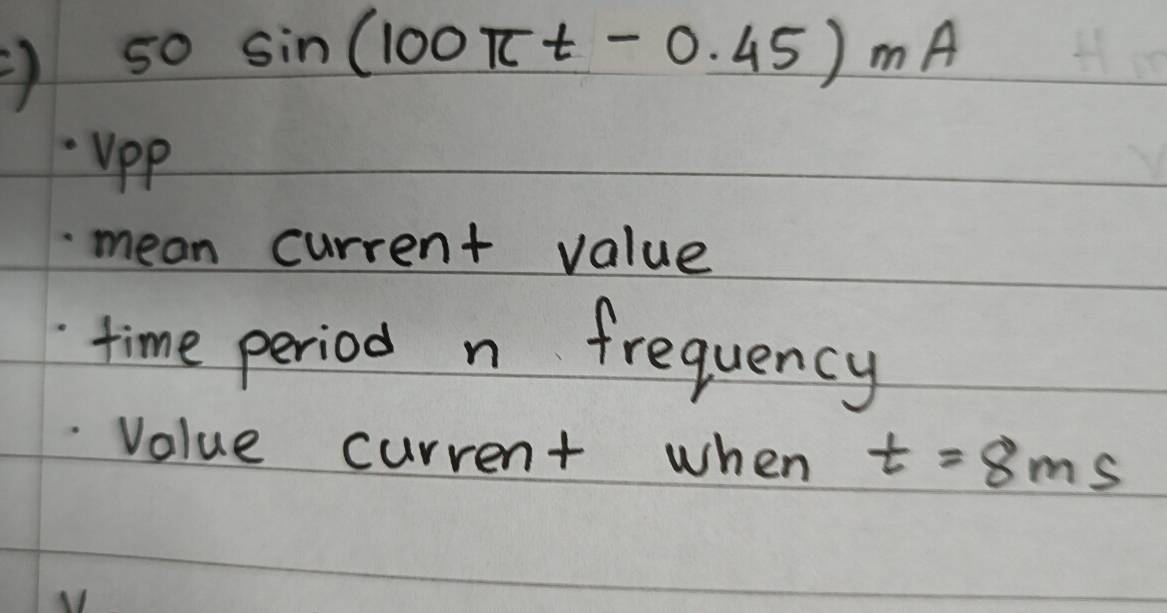 c) 50 sin(100πt - 0.45) mA
· Vpp
· mean current value
· time period n frequency
· Value current when t = 8ms